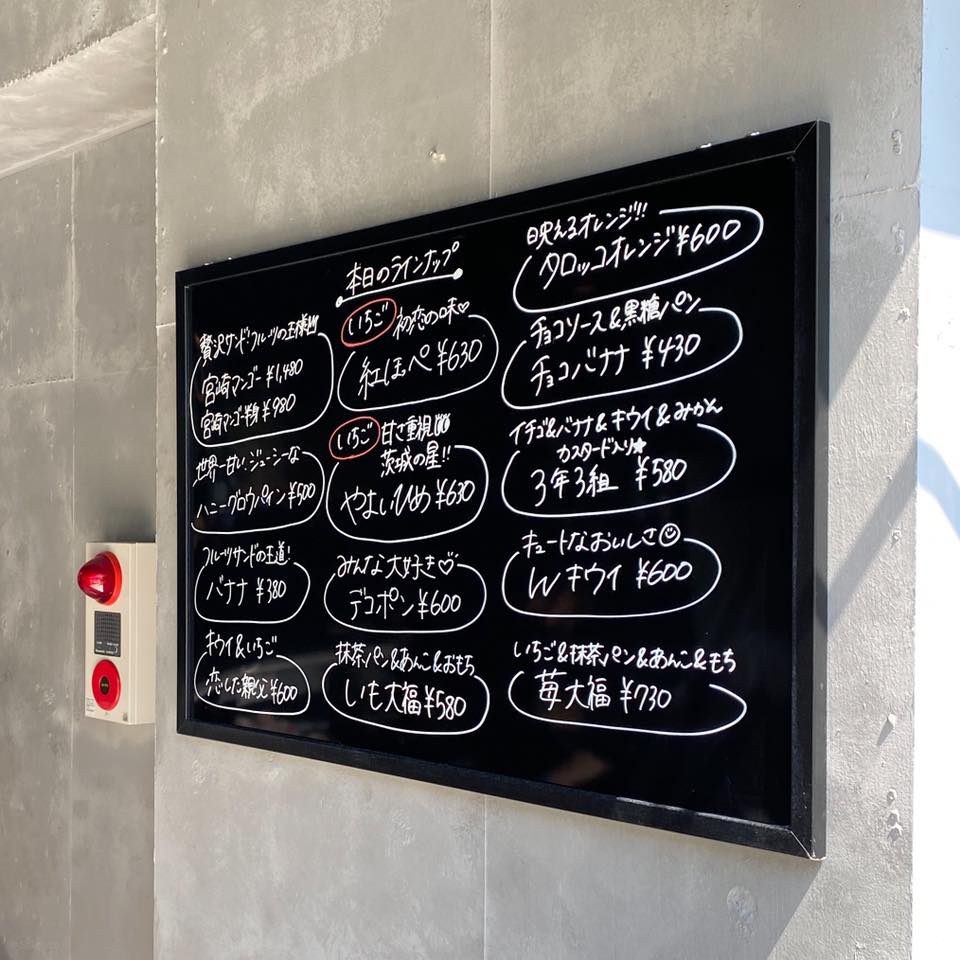 本日のラインナップ
贅沢サンド!フルーツの王様
宮崎マンゴー ¥1,480
宮崎マンゴー半身 ¥980
世界一甘い、ジューシーな
ハニーグロウパイン ¥500
フルーツサンドの王道!
バナナ ¥380
キウイ&いちご
恋した親父 ¥600
いちご 初恋の味♡
紅ほっぺ ¥630
いちご 甘さ重視
茨城の星!!
やよいひめ ¥630
みんな大好き♡
デコポン ¥600
抹茶パン&あんこ&おもち
いも大福 ¥580
映えるオレンジ!!
タロッコオレンジ ¥600
チョコソース&黒糖パン
チョコバナナ ¥430
イチゴ&バナナ&キウイ&みかん
カスタード入り★
3年3組 ¥580
キュートなおいしさ☺
Wキウイ ¥600
いちご&抹茶パン&あんこ&もち
苺大福 ¥730